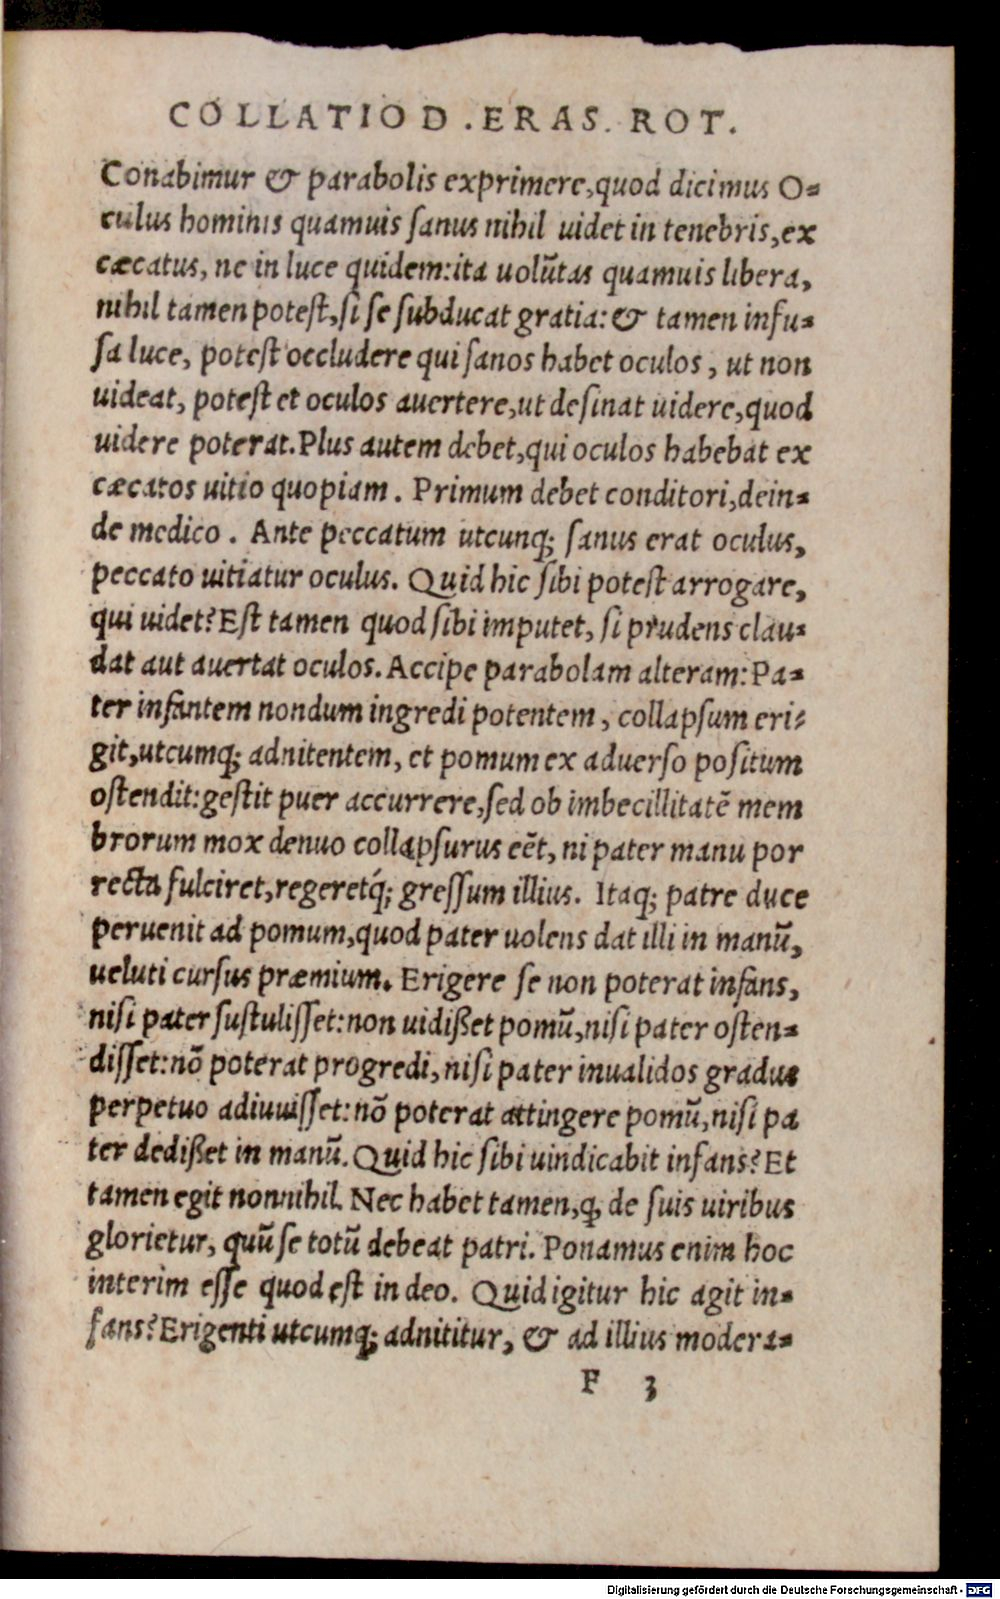 COLLATIO D. ERAS. ROT.
Conabimur & parabolis exprimere, quod dicimus O-
culus hominis quamuis ſanus nihil uidet in tenebris, ex
cæcatus, ne in luce quidem: ita uolūtas quamuis libera,
nihil tamen poteſt, ſi ſe ſubducat gratia: & tamen infu-
ſa luce, poteſt occludere qui ſanos habet oculos, ut non
uideat, poteſt et oculos auertere, ut deſinat uidere, quod
uidere poterat. Plus autem debet, qui oculos habebat ex
cæcatos uitio quopiam. Primum debet conditori, dein-
de medico. Ante peccatum utcunq; ſanus erat oculus,
peccato uitiatur oculus. Quid hic ſibi poteſt arrogare,
qui uidet? Eſt tamen quod ſibi imputet, ſi prudens clau-
dat aut auertat oculos. Accipe parabolam alteram: Pa-
ter infantem nondum ingredi potentem, collapſum eri-
git, utcumq; adnitentem, et pomum ex aduerſo poſitum
oſtendit: geſtit puer accurrere, ſed ob imbecillitatē mem
brorum mox denuo collapſurus eēt, ni pater manu por
recta fulciret, regeretq́; greſſum illius. Itaq; patre duce
peruenit ad pomum, quod pater uolens dat illi in manū,
ueluti curſus præmium. Erigere ſe non poterat infans,
niſi pater ſuſtuliſſet: non uidißet pomū, niſi pater oſten-
diſſet: nō poterat progredi, niſi pater inualidos gradus
perpetuo adiuuiſſet: nō poterat attingere pomū, niſi pa
ter dedißet in manū. Quid hic ſibi uindicabit infans? Et
tamen egit nonnihil. Nec habet tamen, ꝙ de ſuis uiribus
glorietur, quū ſe totū debeat patri. Ponamus enim hoc
interim eſſe quod eſt in deo. Quid igitur hic agit in-
fans? Erigenti utcumq; adnititur, & ad illius modera-
F 3
Digitalisierung gefördert durch die Deutsche Forschungsgemeinschaft - DFG